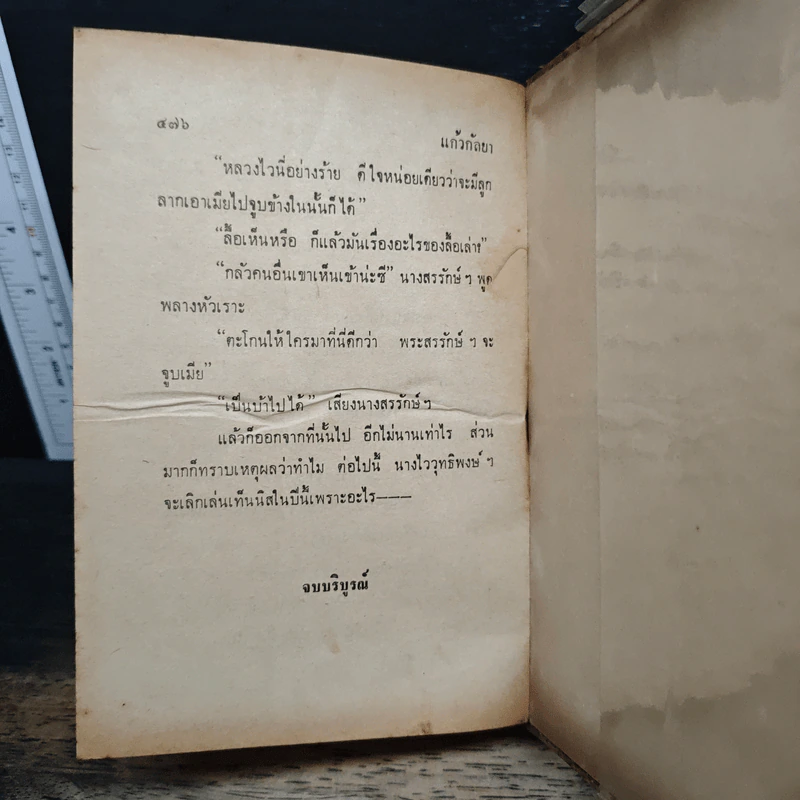 ๔๗๖
แก้วกัลยา
“หลวงไวนี่อย่างร้าย ดีใจหน่อยเดียวว่าจะมีลูก
ลากเอาเมียไปจูบข้างในนั้นก็ได้”
“ลื้อเห็นหรือ ก็แล้วมันเรื่องอะไรของลื้อเล่า?”
“กลัวคนอื่นเขาเห็นเข้าน่ะซี” นางสรรักษ์ ฯ พูด
พลางหัวเราะ
“ตะโกนให้ใครมาที่นี่ดีกว่า พระสรรักษ์ ฯ จะ
จูบเมีย”
“เป็นบ้าไปได้” เสียงนางสรรักษ์ ฯ
แล้วก็ออกจากที่นั้นไป อีกไม่นานเท่าไร ส่วน
มากก็ทราบเหตุผลว่าทำไม ต่อไปนี้ นางไววุทธิพงษ์ ฯ
จะเลิกเล่นเท็นนิสในปีนี้เพราะอะไร———
จบบริบูรณ์